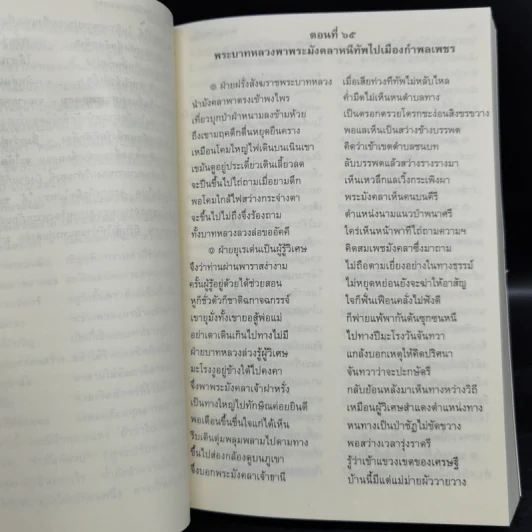 ตอนที่ ๖๕
พระบาทหลวงพาพระมังคลาหนีทัพไปเมืองกำพลเพชร
๏ ฝ่ายฝรั่งสังฆราชพระบาทหลวง เมื่อเสียท่วงทีทัพไม่หลับไหล
นำมังคลาพาตรงเข้าพงไพร ค่ำมืดไม่เห็นหนตำบลทาง
เที่ยวบุกป่าฝ่าหนามลงข้ามห้วย เป็นตรอกตรวยโตรกชะง่อนสิงขรขวาง
ถึงเขามฤคดึกดื่นหยุดยืนคราง พอแลเห็นเป็นสว่างข้างบรรพต
เหมือนโคมใหญ่ไฟเดินบนเนินเขา คิดว่าเข้าเขตตำบลชนบท
เขม้นดูอยู่ประเดี๋ยวเดินเลี้ยวลด ลับบรรพตแล้วสว่างรางรางมา
จะปีนขึ้นไปไถ่ถามเมื่อยามดึก เห็นเหวลึกแลเวิ้งกระเพิงผา
พอโคมใกล้ไฟสว่างกระจ่างตา พระมังคลาเห็นคนบนคีรี
จะขึ้นไปไม่ถึงจึ่งร้องถาม ตำแหน่งนามแนวป่าพนาศรี
ทั้งบาทหลวงลวงล่อขออัคคี ใคร่เห็นหน้าพาทีไถ่ถามความฯ
๏ ฝ่ายยุเรเด่นเป็นผู้รู้วิเศษ คิดสมเพชมังคลาซึ่งมาถาม
จึงว่าท่านผ่านพาราสง่างาม ไม่ถือตามเยี่ยงอย่างในทางธรรม์
ครั้นผู้รู้อยู่ด้วยได้ช่วยสอน ไม่หยุดหย่อนยังจะฆ่าให้อาสัญ
หูก็ชั่วตัวก็ชาติฉกาจฉกรรจ์ ใจก็ฟั่นเฟือนคลั่งไม่ฟังดี
เขายุมั่งทั้งเขายอสู้พ่อแม่ ก็พ่ายแพ้พากันดั้นซุกซนหนี
อย่าเตาเดินเกินไปทางไม่มี ไปทางปีมะโรงวันจันทวา
ฝ่ายบาทหลวงล่วงรู้ผู้วิเศษ แกล้งบอกเหตุให้คิดปริศนา
มะโรงงูอยู่ข้างใต้ไปคงคา จันทวาว่าจะปะกษัตรี
จึ่งพาพระมังคลาเจ้าฝาหรั่ง กลับย้อนหลังมาเห็นทางหว่างวิถี
เป็นทางใหญ่ไปทักษิณค่อยยินดี เหมือนผู้วิเศษสำแดงตำแหน่งทาง
พอเดือนขึ้นชื่นใจแก่ได้เห็น หนทางเป็นป่าชัฏไม่ขัดขวาง
รีบเดินดุ่มพลุมพลามไปตามทาง พอสว่างเวลารุ่งราตรี
ขึ้นไปส่องกล้องดูบนภูเขา รู้ว่าเข้าแขวงเขตของเศรษฐี
จึ่งบอกพระมังคลาเจ้าธานี บ้านนี้มีแต่แม่ม่ายผัววายวาง